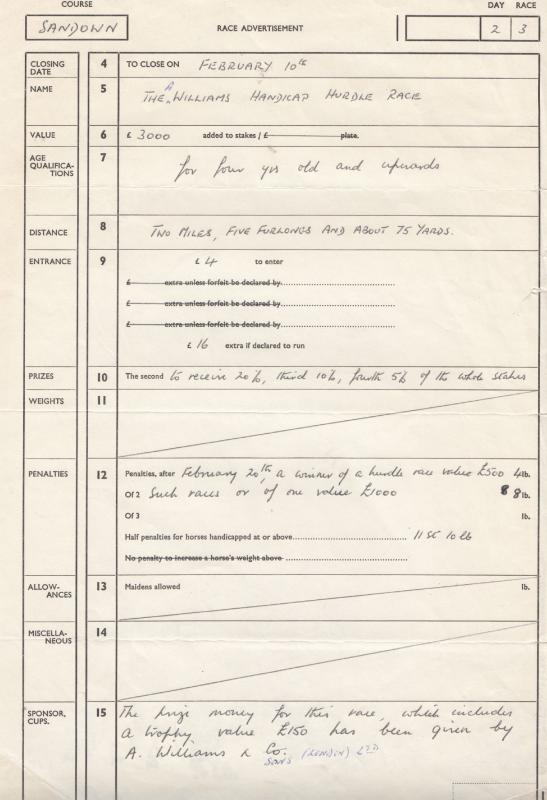 COURSE
DAY RACE
SANDOWN
RACE ADVERTISEMENT
2 3
CLOSING DATE 4 TO CLOSE ON FEBRUARY 10th
NAME 5 THE A WILLIAMS HANDICAP HURDLE RACE
VALUE 6 £ 3000 added to stakes / £ plate.
AGE QUALIFICA-TIONS 7 for four yrs old and upwards
DISTANCE 8 TWO MILES, FIVE FURLONGS AND ABOUT 75 YARDS.
ENTRANCE 9 £ 4 to enter
£ extra unless forfeit be declared by
£ extra unless forfeit be declared by
£ extra unless forfeit be declared by
£ 16 extra if declared to run
PRIZES 10 The second to receive 20%, third 10%, fourth 5% of the whole stakes
WEIGHTS 11
PENALTIES 12 Penalties, after February 20th, a winner of a hurdle race value £500 4lb.
Of 2 Such races or of one value £1000 8 8lb.
Of 3 lb.
Half penalties for horses handicapped at or above 11 St 10 lb
No penalty to increase a horse's weight above
ALLOW-ANCES 13 Maidens allowed lb.
MISCELLA-NEOUS 14
SPONSOR, CUPS. 15 The prize money for this race, which includes
a trophy value £150 has been given by
A. Williams & Co.
SONS (LONDON) LTD